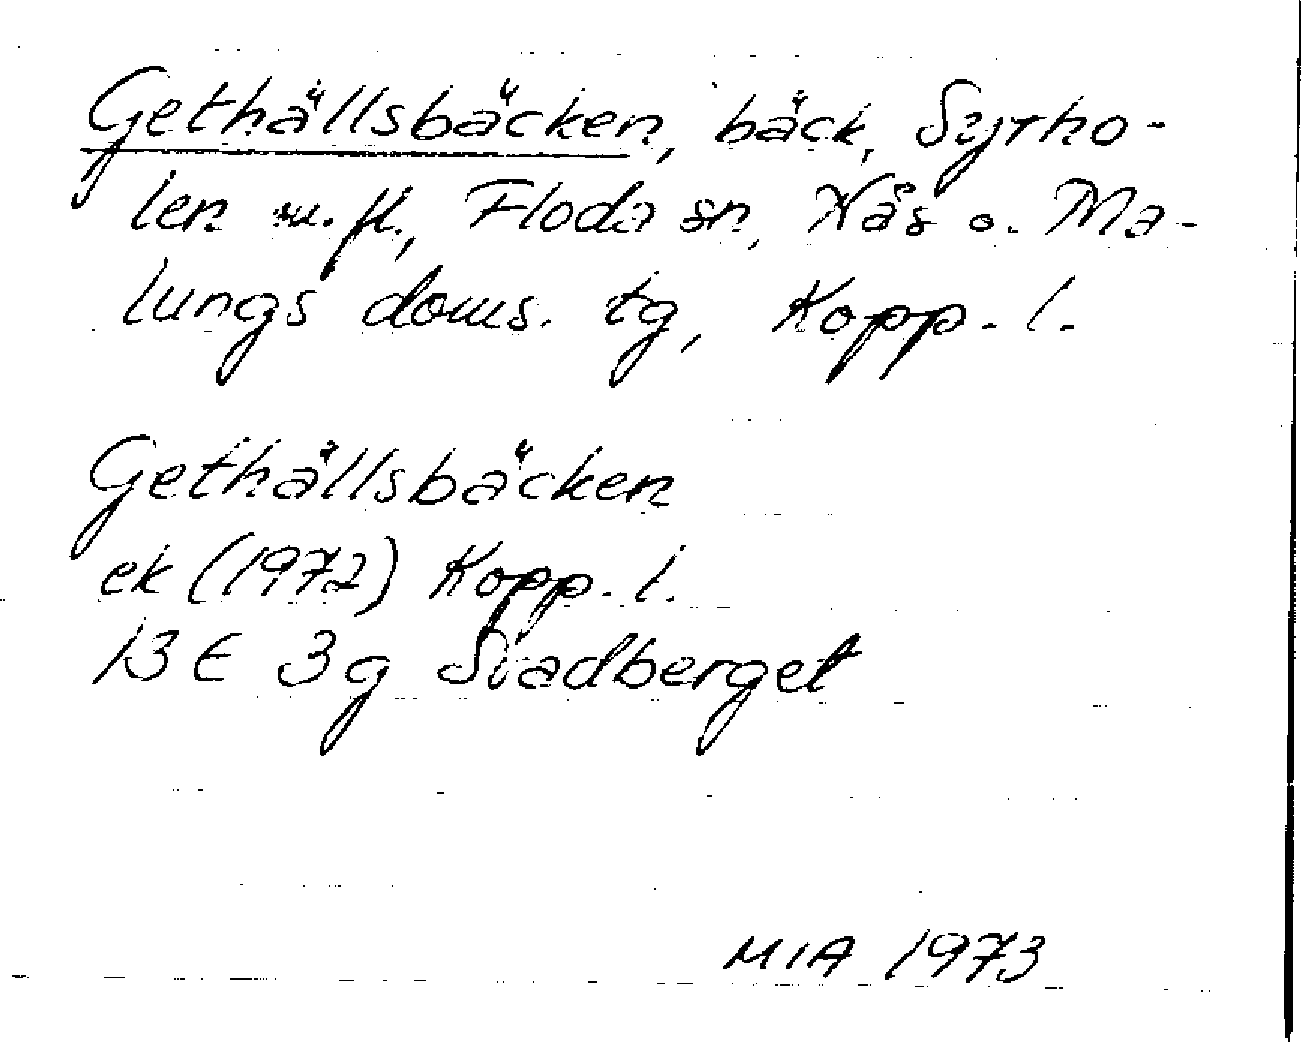 Gethällsbäcken, bäck, Syrho-
len m.fl., Floda sn, Nås o. Ma-
lungs doms. tg, Kopp. l.
Gethällsbäcken
ek (1972) Kopp. l.
13 E 3g Svadberget
MIA 1973